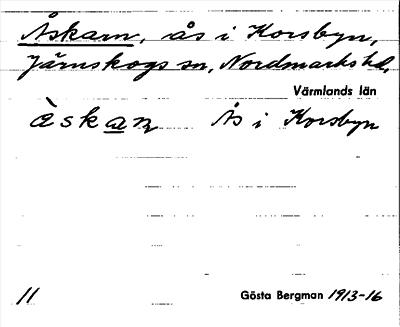 Åskam, ås i Korsbyn,
Järnskogs sn, Nordmarks hd,
Värmlands län
àskam Ås i Korsbyn
11 Gösta Bergman 1913-16